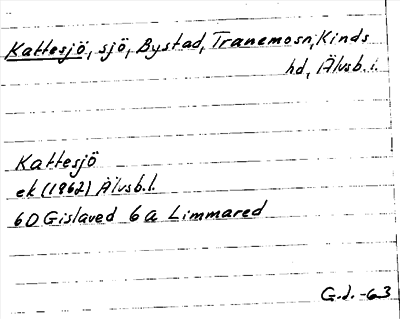 Kattesjö, sjö, Bystad, Tranemo sn, Kinds
hd, Älvsb. l.
Kattesjö
ek (1962) Älvsb. l.
6D Gislaved 6a Limmared
G.J. -63